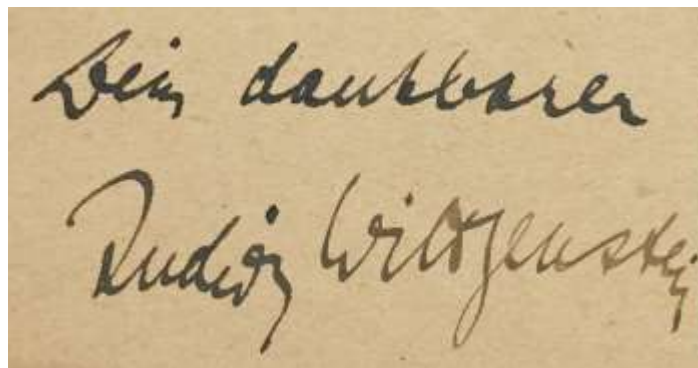 Dein dankbarer
Ludwig Wittgenstein